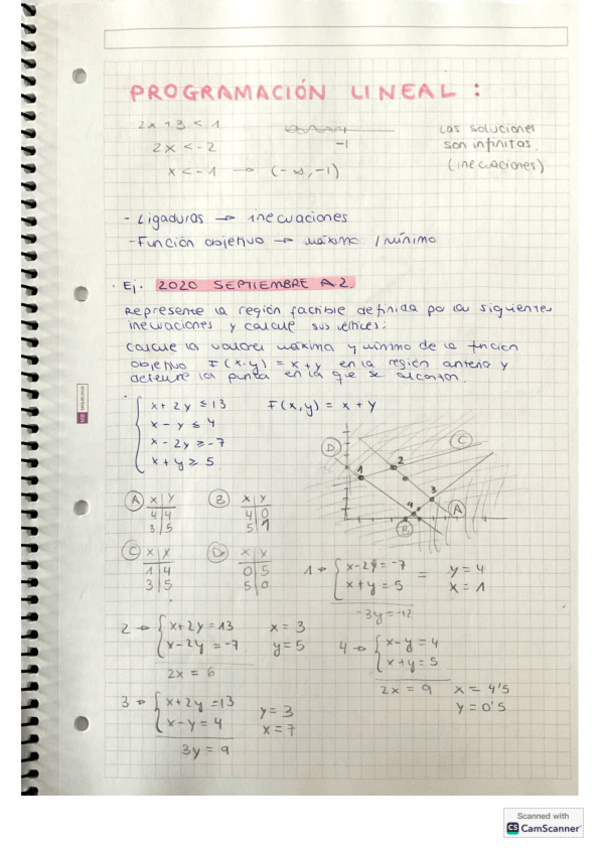 PROGRAMACIÓN LINEAL :
2x + 3 < 1
2x < -2
x < -1 → (-∞, -1)
-1
Las soluciones
son infinitas.
(inecuaciones)
- Ligaduras → inecuaciones
- Función objetivo → máximo / mínimo
· Ej. 2020 SEPTIEMBRE A.2.
Represente la región factible definida por las siguientes
inecuaciones y calcule sus vértices:
Calcule los valores máximo y mínimo de la función
objetivo F(x,y) = x + y en la región anterior y
determine los puntos en los que se alcanzan.
x + 2y ≤ 13
x - y ≤ 4
x - 2y ≥ -7
x + y ≥ 5
F(x,y) = x + y
D
C
1
2
3
4
A
B
A x | y
4 | 4
3 | 5
B x | y
4 | 0
5 | 1
C x | y
1 | 4
3 | 5
D x | y
0 | 5
5 | 0
1 → x - 2y = -7
x + y = 5
-3y = -12
= y = 4
x = 1
2 → x + 2y = 13
x - 2y = -7
2x = 6
x = 3
y = 5
3 → x + 2y = 13
x - y = 4
3y = 9
y = 3
x = 7
4 → x - y = 4
x + y = 5
2x = 9
x = 4'5
y = 0'5
Scanned with
CS CamScanner